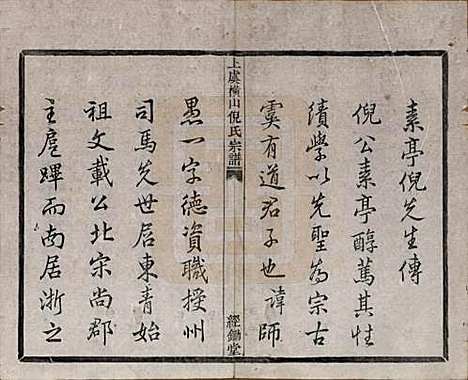 素亭倪先生傳
倪公素亭醇篤其性
績學以先聖為宗古
虞有道君子也諱師
上虞橫山倪氏宗譜
經鋤堂
愚一字德資職授州
司馬先世居東青始
祖文載公北宋尚郡
主扈蹕而南居浙之